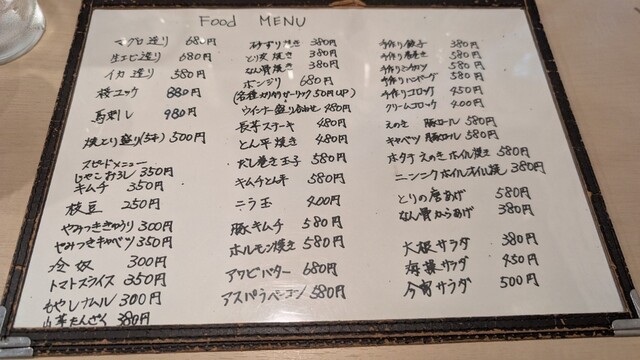 Food MENU
マグロ造り 680円
生エビ造り 680円
イカ造り 580円
桜ユッケ 880円
馬刺し 980円
焼とり盛り(5本) 500円
スピードメニュー
じゃこおろし 350円
キムチ 350円
枝豆 250円
やみつききゅうり 300円
やみつきキャベツ 350円
冷奴 300円
トマトスライス 350円
もやしナムル 300円
山芋たんざく 380円
砂ずり焼き 380円
とり炭焼き 380円
なん骨焼き 380円
ボンジリ 680円
ウインナー盛り合わせ 480円
長芋ステーキ 480円
とん平焼き 480円
だし巻き玉子 580円
キムチとん平 580円
ニラ玉 400円
豚キムチ 580円
ホルモン焼き 580円
アワビバター 680円
アスパラベーコン 580円
手作り餃子 380円
手作り春巻き 580円
手作りミンチカツ 580円
手作りハンバーグ 580円
手作りコロッケ 450円
クリームコロッケ 400円
えのき豚ロール 580円
キャベツ豚ロール 580円
ホタテえのきホイル焼き 580円
ニンニクホイルオイル焼 380円
とりの唐あげ 580円
なん骨からあげ 380円
大根サラダ 380円
海藻サラダ 450円
今宵サラダ 500円